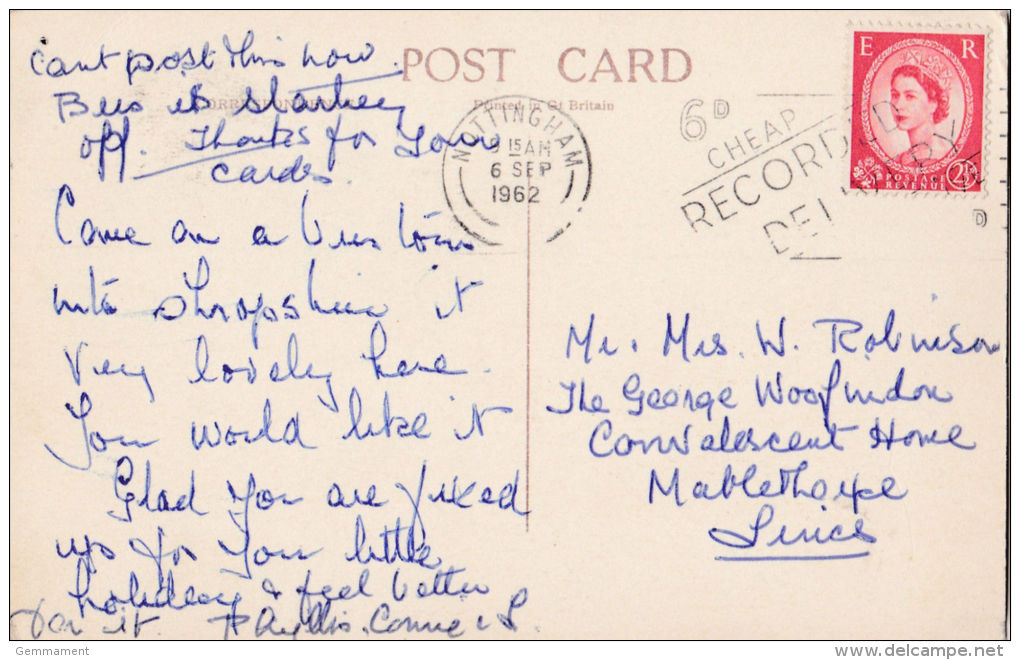 Cant post this now.
Bus is starting
off. Thanks for your
cards.
POST CARD
CORRESPONDENCE
Printed in Gt Britain
NOTTINGHAM
9 15 AM
6 SEP
1962
6D
CHEAP
RECORDED
DELIVERY
E R
POSTAGE
REVENUE
2½D
Came on a bus tour
into Shropshire it
very lovely here.
You would like it
Glad you are fixed
up for your little
holiday & feel better
for it. Phyllis. Connie & S.
Mr. Mrs. W. Robinson
The George Woofindon
Convalescent Home
Mablethorpe
Lincs
Gemmament
delcampe.net